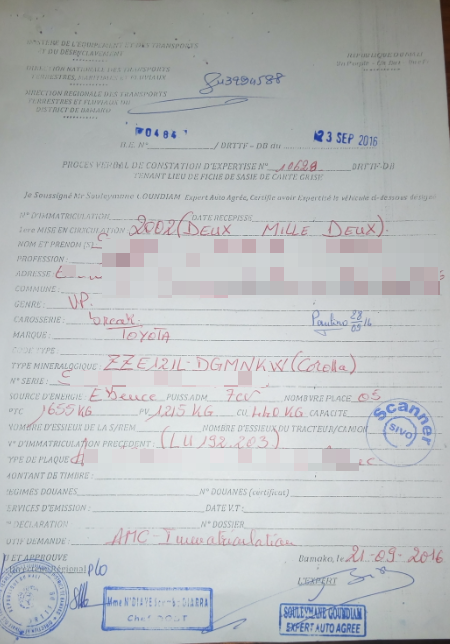 MINISTERE DE L'EQUIPEMENT ET DES TRANSPORTS
ET DU DESENCLAVEMENT
REPUBLIQUE DU MALI
Un Peuple - Un But - Une Foi
DIRECTION NATIONALE DES TRANSPORTS
TERRESTRES, MARITIMES ET FLUVIAUX
DIRECTION REGIONALE DES TRANSPORTS
TERRESTRES ET FLUVIAUX DU
DISTRICT DE BAMAKO
0484 23 SEP 2016
N° / DRTTF - DB du
PROCES VERBAL DE CONSTATION D'EXPERTISE N° 10629 DRTTF-DB
TENANT LIEU DE FICHE DE SASIE DE CARTE GRISE
Je Soussigné Mr Souleymane GOUNDIAM Expert Auto Agrée, Certifie avoir Expertisé le véhicule ci-dessous désigné
N° D'IMMATRICULATION DATE RECEPISSE
1ere MISE EN CIRCULATION 2002 (DEUX MILLE DEUX)
NOM ET PRENOM (S)
PROFESSION :
ADRESSE
COMMUNE :
GENRE : VP
CAROSSERIE : break
MARQUE : TOYOTA
TYPE MINERALOGIQUE ZZE121L-DGMNKW (Corolla)
N° SERIE :
SOURCE D'ENERGIE Essence PUISS ADM 7cv NOMBVRE PLACE 05
PTC 1655 KG PV 1215 KG CU 440 KG CAPACITE
NOMBRE D'ESSIEUX DE LA S/REM NOMBRE D'ESSIEUX DU TRACTEUR/CAMION
Scanner
SIVO
N° D'IMMATRICULATION PRECEDENT : (LU 192.203)
TYPE DE PLAQUE
MONTANT DE TIMBRE :
REGIMES DOUANES N° DOUANES (certificat)
SERVICES D'EMISSION : DATE V.T :
N° DECLARATION N° DOSSIER
MOTIF DEMANDE : AMC-Immatriculation
VU ET APPROUVE Bamako, le 21-09-2016
L'EXPERT
SOULEYMANE GOUNDIAM
EXPERT AUTO AGREE